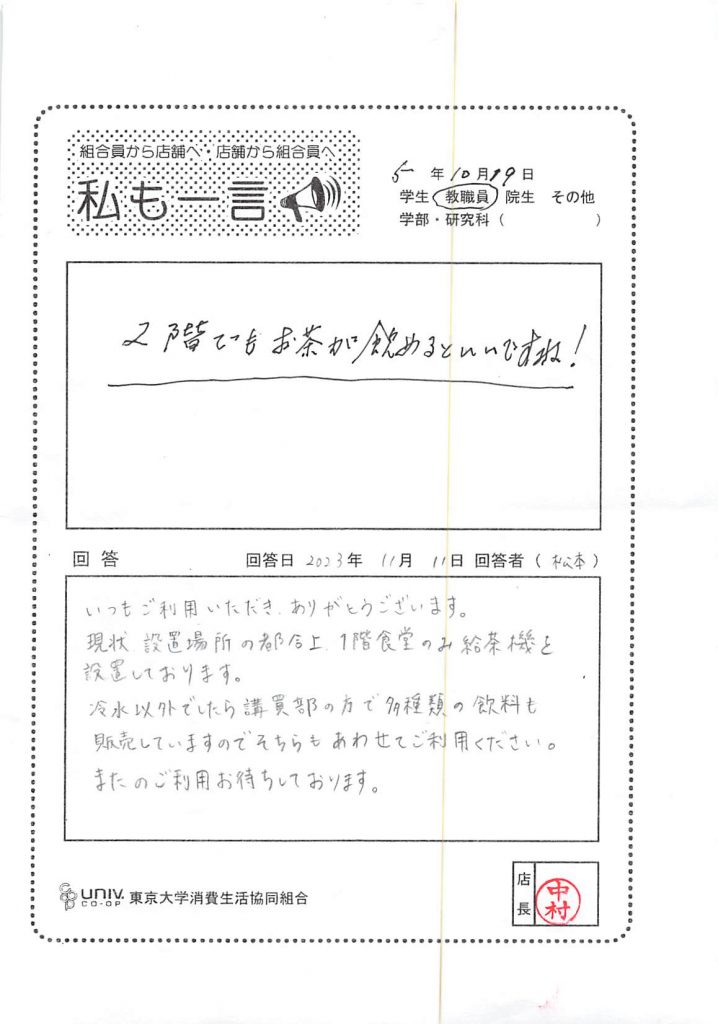 組合員から店舗へ・店舗から組合員へ
私も一言
5年10月19日
学生 教職員 院生 その他
学部・研究科( )
2階でもお茶が飲めるといいですね!
回答 回答日 2023年 11月 11日 回答者(松本)
いつもご利用いただき、ありがとうございます。
現状 設置場所の都合上、1階食堂のみ給茶機を
設置しております。
冷水以外でしたら講買部の方で多種類の飲料も
販売していますのでそちらもあわせてご利用ください。
またのご利用お待ちしております。
UNIV. CO-OP 東京大学消費生活協同組合
店長
中村